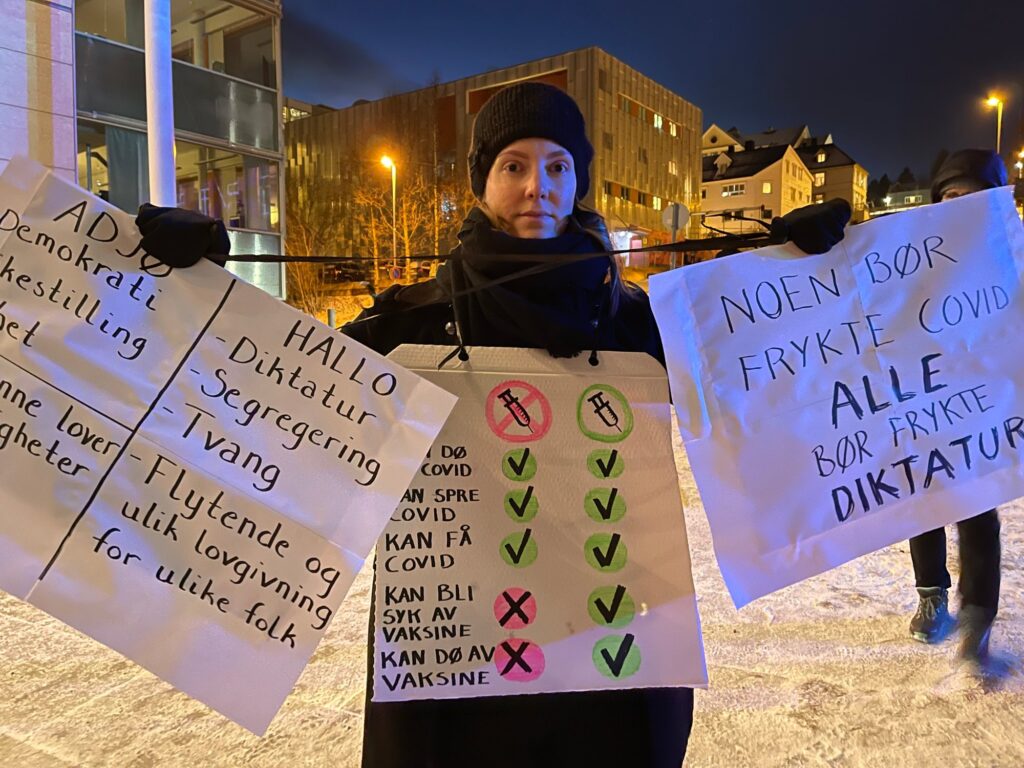 ADJØ
Demokrati
kestilling
het
nne lover
gheter
HALLO
-Diktatur
-Segregering
-Tvang
-Flytende og
ulik lovgivning
for ulike folk
DØ
COVID
KAN SPRE
COVID
KAN FÅ
COVID
KAN BLI
SYK AV
VAKSINE
KAN DØ AV
VAKSINE
NOEN BØR
FRYKTE COVID
ALLE
BØR FRYKTE
DIKTATUR